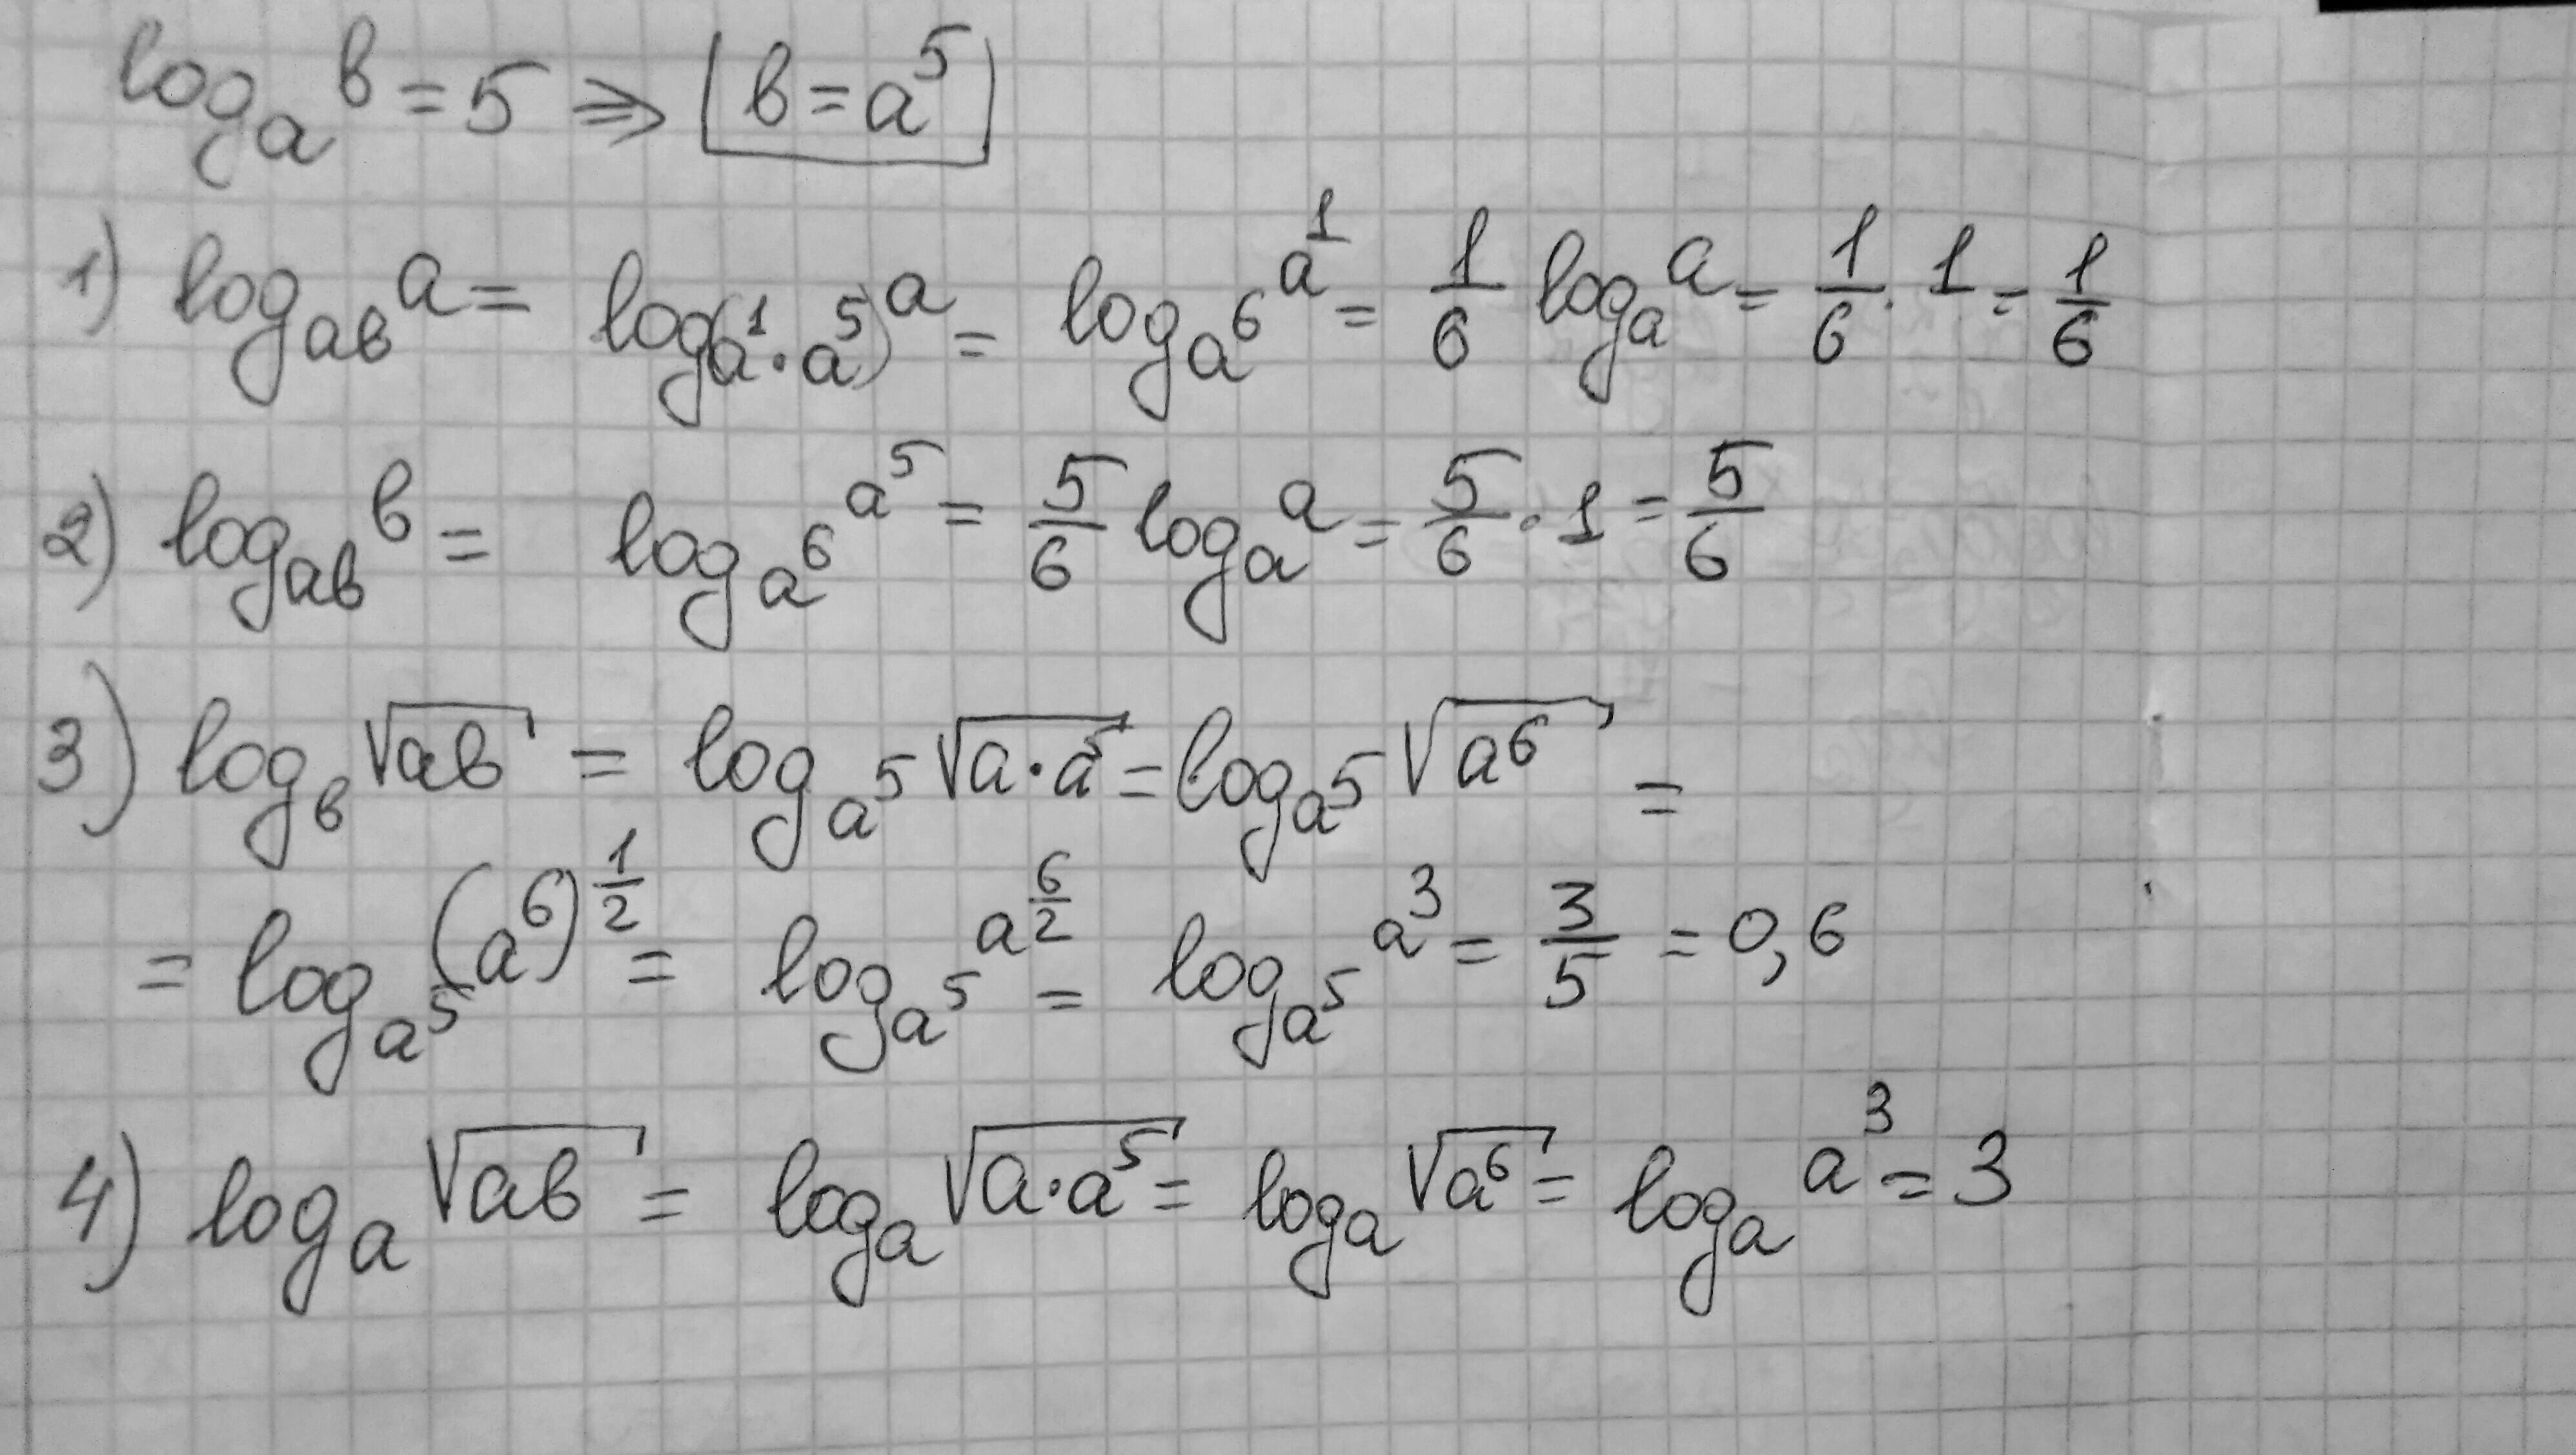 log_a b = 5 ⇒ b = a^5
1) log_{ab} a = log_{(a^1 · a^5)} a = log_{a^6} a^1 = 1/6 log_a a = 1/6 · 1 = 1/6
2) log_{ab} b = log_{a^6} a^5 = 5/6 log_a a = 5/6 · 1 = 5/6
3) log_b √(ab) = log_{a^5} √(a · a^5) = log_{a^5} √(a^6) =
= log_{a^5} (a^6)^{1/2} = log_{a^5} a^{6/2} = log_{a^5} a^3 = 3/5 = 0,6
4) log_a √(ab) = log_a √(a · a^5) = log_a √(a^6) = log_a a^3 = 3